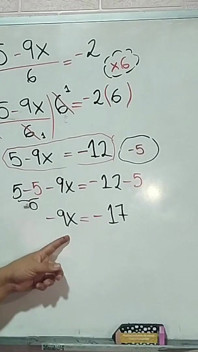 5 - 9x / 6 = -2 ×6
5 - 9x / 6 | 6 1 = -2(6)
5 - 9x = -12 -5
5 - 5 - 9x = -12 - 5
0
-9x = -17